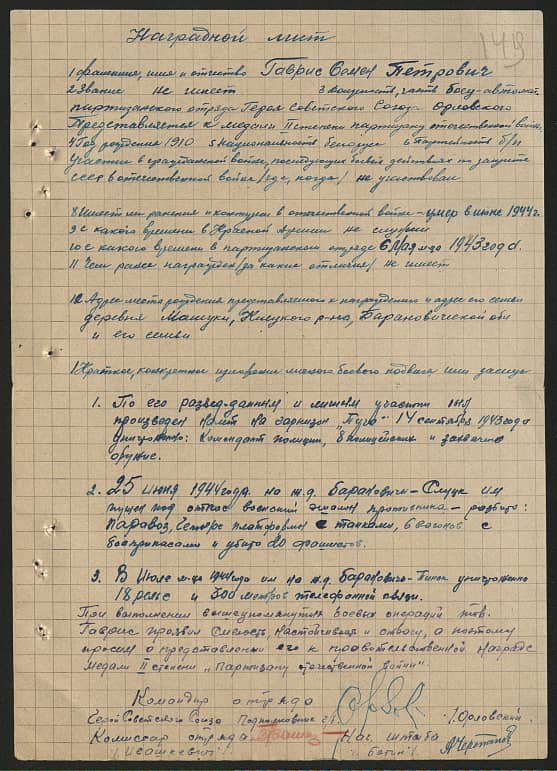 149
Наградной лист
1 фамилия, имя и отчество Гаврис Семен Петрович
2 Звание не имеет 3 Должность, часть боец-автомат.
партизанского отряда Героя Советского Союза Орловского
Представляется к медали II степени партизану отечественной войны.
4 Год рождения 1910 5 Национальность белорус 6 Партийность б/п
участие в гражданской войне, последующих боевых действиях по защите
СССР в отечественной войне /где, когда/ не участвовал
8 Имеет ли ранения и контузии в отечественной войне - умер в июне 1944 г.
9 с какого времени в Красной Армии не служил
10 с какого времени в партизанском отряде 6 Мая м-ца 1943 года.
11 Чем ранее награжден /за какие отличия/ не имеет
12 Адрес места рождения представляемого к награждению и адрес его семьи
деревня Машуки, Клецкого р-на, Барановичской обл
и его семьи
1 Краткое, конкретное изложение личного боевого подвига или заслуг
1. По его развед-данным и личным участии был
произведен налет на гарнизон „Пуга" 14 сентября 1943 года
уничтожено: Комендант полиции, 8 полицейских и захвачено
оружие.
2. 25 июня 1944 года на ж.д. Барановичи-Слуцк им
пущен под откос воинский эшелон противника - разбито:
Паровоз, четыре платформы с танками, 6 вагонов с
боеприпасами и убито 20 фашистов.
3. В Июле м-це 1944 года им на ж.д. Барановичи-Пинск уничтожено
18 рельс и 300 метров телефонной связи.
При выполнении вышеупомянутых боевых операций тов.
Гаврис проявил смелость, настойчивость и отвагу, а поэтому
просим о представлении его к правительственной награде
медали II степени „Партизану отечественной войны".
Командир отряда
Герой Советского Союза Подполковник г/б /Орловский/.
Комиссар отряда Нач. штаба
/Ивашкевич/.